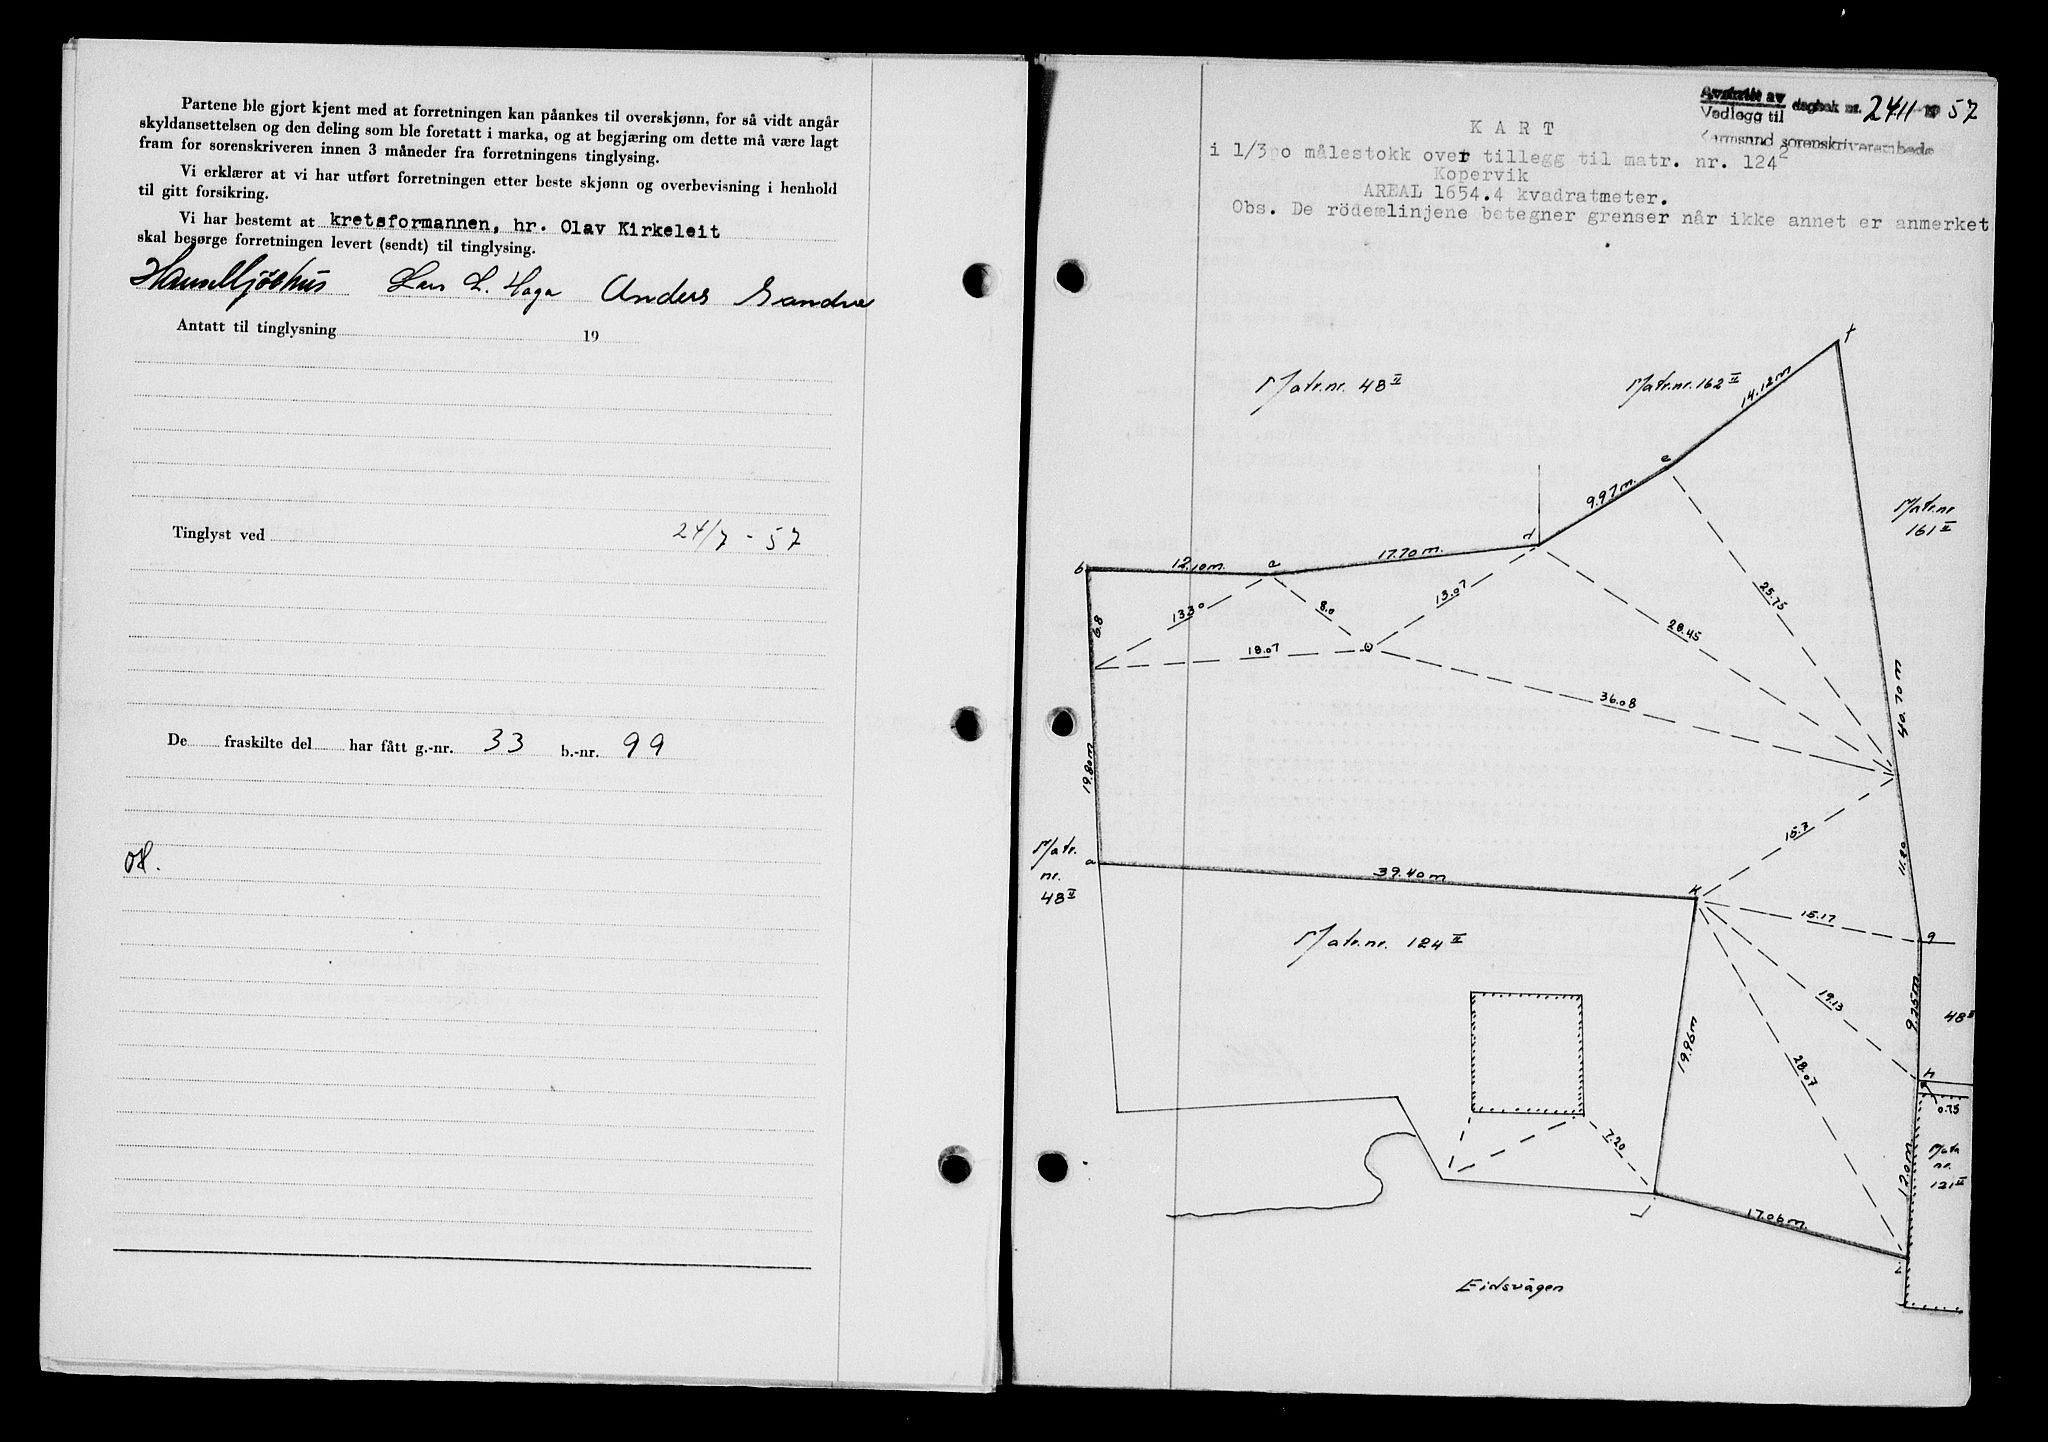 Partene ble gjort kjent med at forretningen kan påankes til overskjønn, for så vidt angår
skyldansettelsen og den deling som ble foretatt i marka, og at begjæring om dette må være lagt
fram for sorenskriveren innen 3 måneder fra forretningens tinglysing.
Vi erklærer at vi har utført forretningen etter beste skjønn og overbevisning i henhold
til gitt forsikring.
Vi har bestemt at kretsformannen, hr. Olav Kirkeleit
skal besørge forretningen levert (sendt) til tinglysing.
Lars L. Haga Anders Sandve
Antatt til tinglysning 19
Tinglyst ved 24/7 - 57
De fraskilte del har fått g.-nr. 33 b.-nr. 99
Avskrift av
Vedlegg til
dagbok nr. 2411 19 57
Karmsund sorenskriverembede
KART
i 1/300 målestokk over tillegg til matr. nr. 124²
Kopervik
AREAL 1654.4 kvadratmeter.
Obs. De rödemlinjene betegner grenser når ikke annet er anmerket
Matr.nr. 48 II
Matr.nr. 162 II
14.12 m
f
e
9.97 m.
Matr.nr
161 II
d
17.70 m.
b
12.10 m.
6.8
13.30
8.0
13.07
25.75
28.45
18.07
36.08
40.70 m
19.80 m
15.7
11.20
Matr.
nr.
48 II
a
39.40 m
K
15.17
g
Matr.nr. 124 II
19.13
9.25 m.
48 II
19.96 m
28.07
h
0.75
7.20
12.0 m
Matr
nr.
121 II
17.06 m.
i
Eidsvågen